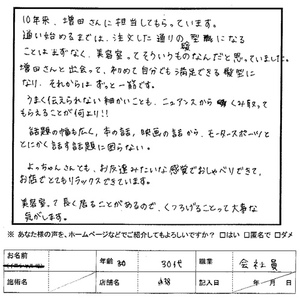 10年来、増田さんに担当してもらっています。
通い始めるまでは、注文した通りの髪型になる
ことはまずなく、美容室ってそういうものなんだと思っていました。
増田さんと出会って、初めて自分でも満足できる髪型に
なり、それからはずっと一筋です。
うまく伝えられない細かいことも、ニュアンスから くみ取って
もらえることが何より!!
話題の幅も広く、本の話、映画の話から、モータースポーツと
とにかく話す話題に困らない。
よっちゃんさんとも、お友達みたいな感覚でおしゃべりできて、
お店でとてもリラックスできています。
美容室って長く居ることがあるので、くつろげることって大事な
気がします。
※ あなた様の声を、ホームページなどでご紹介してもよろしいですか? □はい □匿名で □ダメ
お名前 年齢 30 30代 職業 会社員
施術名 店舗名 記入日 年 月 日